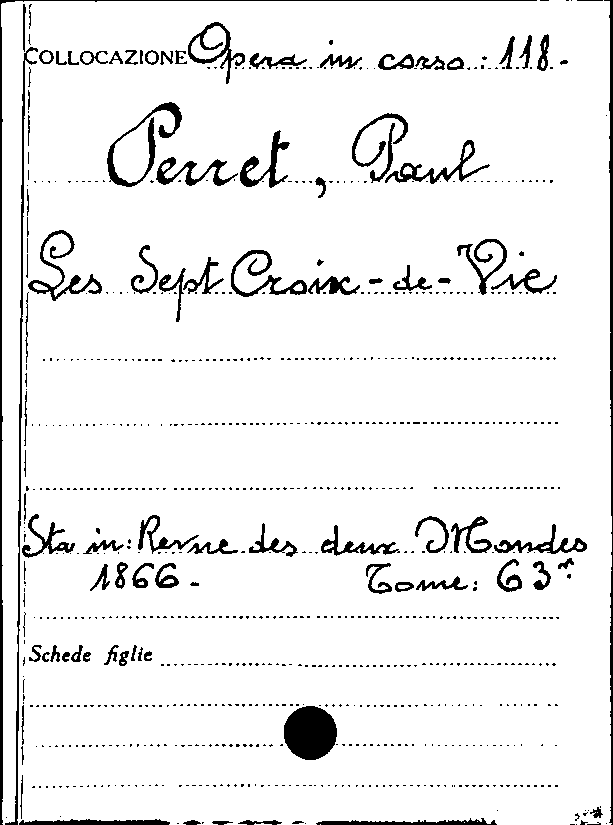 COLLOCAZIONE Opera in corso: 118.
Perret, Paul
Les Sept Croix-de-Vie
Sta in: Revue des deux Mondes
1866. Tome: 63.
Schede figlie